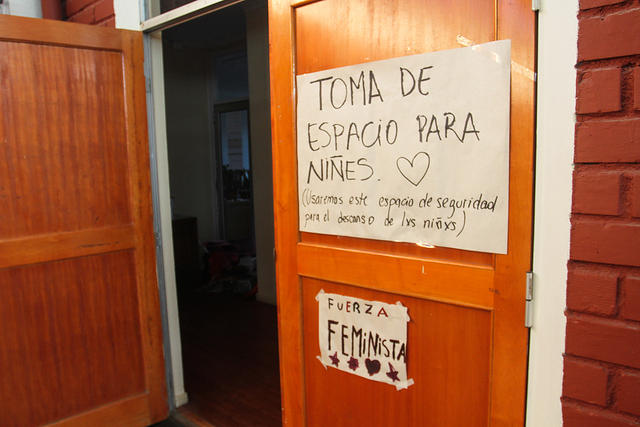 TOMA DE
ESPACIO PARA
NIÑES. ♡
(Usaremos este espacio de seguridad
para el descanso de lxs niñxs)
FUERZA
FEMINISTA